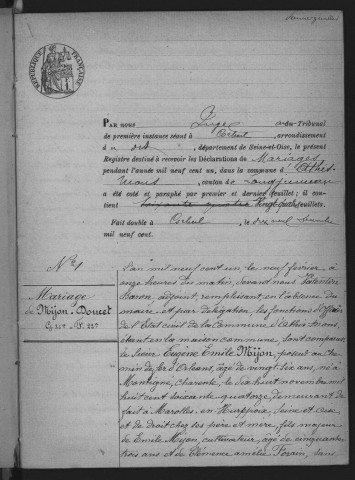 RÉPUBLIQUE FRANÇAISE
PAR nous Juge au Tribunal
de première instance séant à Corbeil, arrondissement
d dit, département de Seine-et-Oise, le présent
Registre destiné à recevoir les Déclarations de Mariages
pendant l'année mil neuf cent un, dans la commune d'Athis-
Mons, canton de Longjumeau
a été coté et paraphé par premier et dernier feuillet; il con-
tient Vingt quatre feuillets.
Fait double à Corbeil, le dix neuf
mil neuf cent.
N° 1
Mariage
de Mijon-Doucet
L'an mil neuf cent un, le neuf février, à
onze heures du matin, devant nous Valentin
Baron, adjoint, remplissant en l'absence du
maire, et par délégation, les fonctions d'officier
de l'Etat civil de la Commune d'Athis-Mons,
étant en la maison commune, sont comparus
le Sieur Eugène Emile Mijon, poseur au che-
min de fer d'Orléans, âgé de vingt-six ans, né à
Montigné, charente, le dix huit novembre mil
huit cent soixante quatorze demeurant de
fait à Marolles en Hurepoix, Seine et Oise
et de droit chez ses père et mère, fils majeur
de Emile Mijon, cultivateur, âgé de cinquante
trois ans et de Clémence Amélie sans